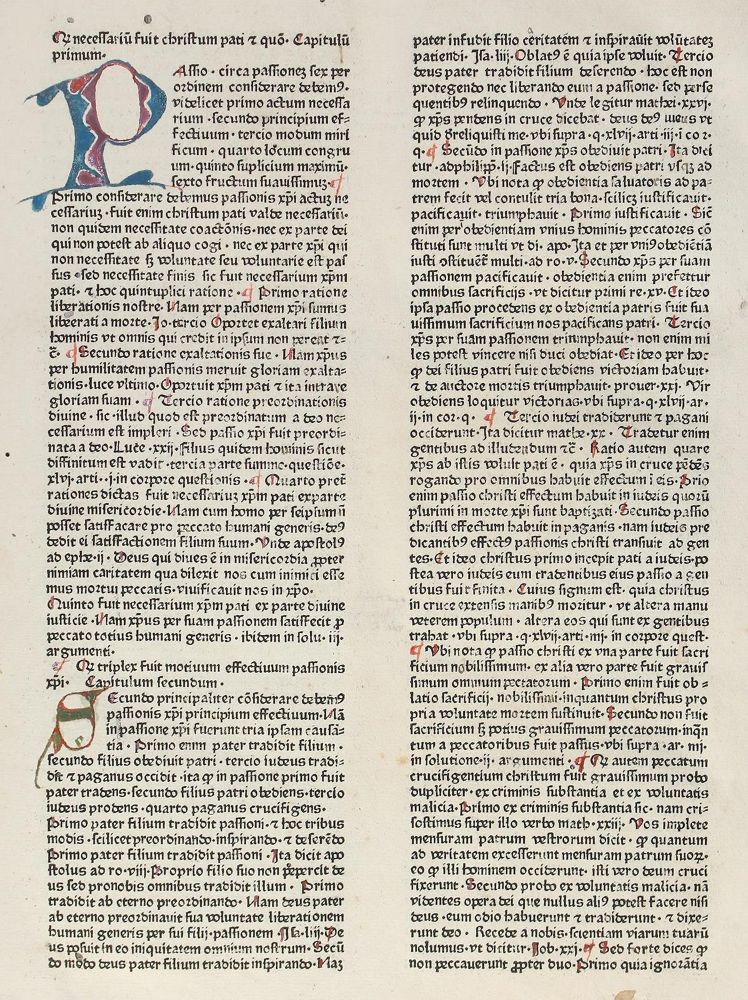 Qꝛ necessariū fuit christum pati ⁊ quō· Capitulū
primum·
PAssio · circa passionez sex per
ordinem considerare debemꝰ
videlicet primo actum necessa
rium · secundo principium ef-
fectiuum · tercio modum miri
ficum · quarto locum congru
um· quinto suplicium maximū·
sexto fructum suauissimuz·
Primo considerare debemus passionis xp̄i actuz ne
cessariuz · fuit enim christum pati valde necessariū·
non quidem necessitate coactōnis· nec ex parte dei
qui non potest ab aliquo cogi · nec ex parte xp̄i qui
non necessitate sꝫ voluntate seu voluntarie est pas
sus · sed necessitate finis sic fuit necessarium xp̄m
pati · ⁊ hoc quintuplici ratione · Primo ratione
liberationis nostre · Nam per passionem xp̄i sumus
liberati a morte · Jo·tercio Oportet exaltari filium
hominis vt omnis qui credit in ipsum non pereat ⁊-
c̄· Secundo ratione exaltationis sue · Nam xp̄us
per humilitatem passionis meruit gloriam exalta-
tionis·luce vltimo·Oportuit xp̄m pati ⁊ ita intrare
gloriam suam · Tercio ratione preordinationis
diuine · sic illud quod est preordinatum a deo ne-
cessarium est impleri · Sed passio xp̄i fuit preordi-
nata a deo· Luce ·xxij· filius quidem hominis sicut
diffinitum est vadit · tercia parte summe· questiōe·
xlvj· arti· ·j· in corpore questionis · Quarto preter
rationes dictas fuit necessariuz xp̄m pati ex parte
diuine misericordie·Nam cum homo per seipsum nō
posset satisfacere pro peccato humani generis· deꝰ
dedit ei satisfactionem filium suum· Vnde apostolꝰ
ad ephe·ij · Deus qui diues ē in misericordia ꝓpter
nimiam caritatem qua dilexit nos cum inimici esse
mus mortui peccatis· viuificauit nos in xp̄o·
Quinto fuit necessarium xp̄m pati ex parte diuine
iusticie · Nam xp̄us per suam passionem satisfecit ꝓ
peccato totius humani generis · ibidem in solu· iij·
argumenti·
Qꝛ triplex fuit motiuum effectiuum passionis
xp̄i· Capitulum secundum·
SEcundo principaliter cōsiderare debemꝰ
passionis xp̄i principium effectiuum·Nā
in passione xp̄i fuerunt tria ipsam causā-
tia · Primo enim pater tradidit filium ·
secundo filius obediuit patri · tercio iudeus tradi-
dit ⁊ paganus occidit · ita ꝙ in passione primo fuit
pater tradens· secundo filius patri obediens· tercio
iudeus prodens · quarto paganus crucifigens·
Primo pater filium tradidit passioni · ⁊ hoc tribus
modis · scilicet preordinando·inspirando· ⁊ deserēdo
Primo pater filium tradidit passioni · Ita dicit apo
stolus ad ro·viij·Proprio filio suo non pepercit de
us sed pronobis omnibus tradidit illum · Primo
tradidit ab eterno preordinando· Nam deus pater
ab eterno preordinauit sua voluntate liberationem
humani generis per sui filij·passionem ·Isa·liij·De
us posuit in eo iniquitatem omnium nostrum · Secū
do modo deus pater filium tradidit inspirando· Naz
pater infudit filio caritatem ⁊ inspirauit volūtatez
patiendi· Isa· liij· Oblatꝰ ē quia ipse voluit· Tercio
deus pater tradidit filium deserendo · hoc est non
protegendo nec liberando eum a passione · sed perse
quentibꝰ relinquendo · Vnde legitur mathei·xxvij·
ꝙ xp̄s pendens in cruce dicebat · deus deꝰ meus vt
quid dereliquisti me· vbi supra · q·xlvij·arti·iij·i cor·
q· Secūdo in passione xp̄s obediuit patri· Ita dici
tur ·adphilipp·ij·Factus est obediens patri vsqꝫ ad
mortem · Vbi nota ꝙ obedientia saluatoris ad pa-
trem fecit vel contulit tria bona · scilicꝫ iustificauit·
pacificauit· triumphauit · Primo iustificauit · Sic̄
enim per obedientiam vnius hominis peccatores cō
stituti sunt multi vt di· apo· Ita et per vniꝰ obediētiā
iusti ꝯstituētꝛ multi·ad ro·v· Secundo xp̄s per suam
passionem pacificauit · obedientia enim prefertur
omnibus sacrificijs · vt dicitur primi re·xv·Et ideo
ipsa passio procedens ex obedientia patris fuit sua
uissimum sacrificium nos pacificans patri · Tercio
xp̄s per suam passionem triumphauit· non enim mi
les potest vincere nisi duci obediat· Et ideo per hoc
ꝙ dei filius patri fuit obediens victoriam habuit·
⁊ de auctore mortis triumphauit· prouer·xxi· Vir
obediens loquitur victorias·vbi supra· q·xlvij·ar·
ij·in cor·q· Tercio iudei tradiderunt ⁊ pagani
occiderunt· Ita dicitur mathe·xx· Tradetur enim
gentibus ad illudendum ⁊c̄· Ratio autem quare
xp̄s ab istis voluit pati ē · quia xp̄s in cruce pēdēs
rogando pro omnibus habuit effectum i eis·Primo
enim passio christi effectum habuit in iudeis quorū
plurimi in morte xp̄i sunt baptizati· Secundo passio
christi effectum habuit in paganis· nam iudeis pre
dicantibꝰ effectꝰ passionis christi transiuit ad gen
tes· Et ideo christus primo incepit pati a iudeis·po
stea vero iudeis eum tradentibus eius passio a gen
tibus fuit finita · Cuius signum est· quia christus
in cruce extensis manibꝰ moritur · vt altera manu
veterem populum · altera eos qui sunt ex gentibus
trahat · vbi supra · q·xlvij·arti·iiij·in corpore quest·
Vbi nota ꝙ passio christi ex vna parte fuit sacri
ficium nobilissimum· ex alia vero parte fuit grauis
simum omnium peccatorum· Primo enim fuit ob-
latio sacrificij· nobilissimi·inquantum christus pro
pria voluntate mortem sustinuit· Secundo non fuit
sacrificium sꝫ potius grauissimum peccatorum·inqn̄
tum a peccatoribus fuit passus·vbi supra·ar·iiij·
in solutione·ij· argumenti · Qꝛ autem peccatum
crucifigentium christum fuit grauissimum probo
dupliciter· ex criminis substantia et ex voluntatis
malicia· Primo ex criminis substantia sic· nam cri-
sostimus super illo verbo math·xxiij· Vos implete
mensuram patrum vestrorum dicit · ꝙ quantum
ad veritatem excesserunt mensuram patrum suorꝝ·
eo ꝙ illi hominem occiderunt· isti vero deum cruci
fixerunt · Secundo probo ex voluntatis malicia· nā
videntes opera dei que nullus aliꝰ potest facere nisi
deus · eum odio habuerunt ⁊ tradiderunt · ⁊ dixe-
runt deo · Recede a nobis·scientiam viarum tuarū
nolumus· vt dicitur·Iob·xxj· Sed forte dices ꝙ
non peccauerunt ꝓpter duo· Primo quia ignorātia